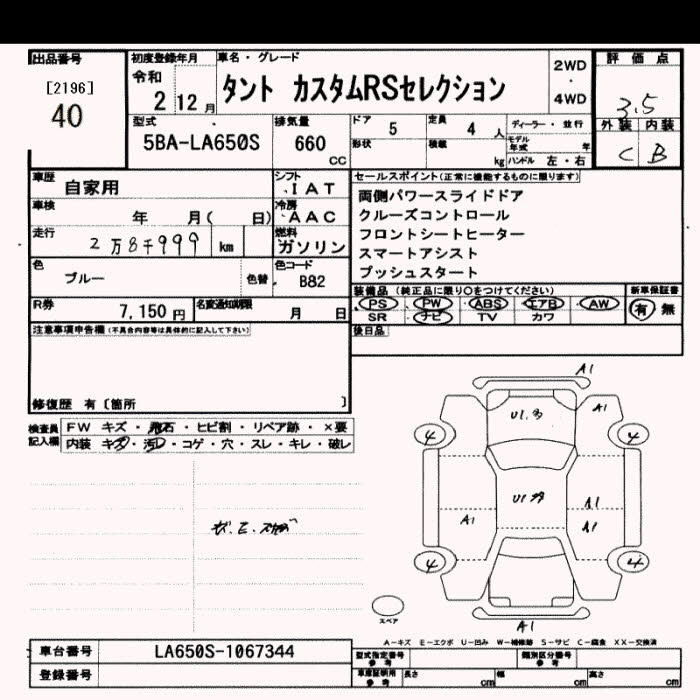 出品番号
[2196]
40
初度登録年月
令和
2 12 月
車名・グレード
タント カスタムRSセレクション
2WD
・
4WD
評価点
3.5
外装 内装
C B
型式
5BA-LA650S
排気量
660
CC
ドア
5
定員
4 人
形状
積載
kg
ディーラー・並行
モデル年式 年
ハンドル 左・右
車歴
自家用
シフト
IAT
車検
年 月( 日)
冷房
AAC
走行
2万8千999 km
燃料
ガソリン
色
ブルー
色替
色コード
B82
R券
7,150 円
名変通知期限
月 日
セールスポイント(正常に機能するものに限ります)
両側パワースライドドア
クルーズコントロール
フロントシートヒーター
スマートアシスト
プッシュスタート
装備品 (純正品に限り○をつけてください)
PS PW ABS エアB AW
SR ナビ TV カワ
新車保証書
有 無
後日品
注意事項申告欄 (不具合内容等は具体的に記入して下さい)
修復歴 有 〔箇所 〕
検査員
記入欄
FW キズ・飛石・ヒビ割・リペア跡・×要
内装 キズ・汚レ・コゲ・穴・スレ・キレ・破レ
A1
U1.多
A1
4
4
U1
A1
A1
A1
4
4
スペア
A1
A-キズ E-エクボ U-凹み W-補修跡 S-サビ C-腐食 XX-交換済
車台番号
LA650S-1067344
登録番号
型式指定番号
参考
類別区分番号
参考
車庫証明用
参考
長さ cm
幅 cm
高さ cm